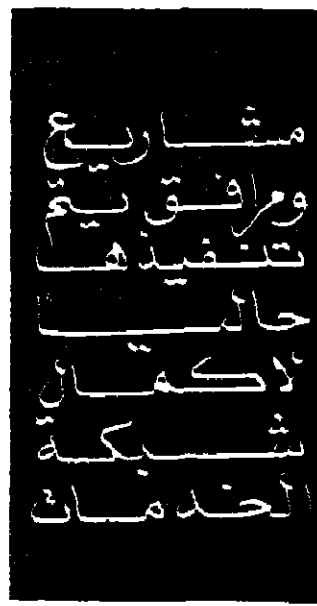 مشاريع
ومرافق يتم
تنفيذها
حاليا
لاكمال
شبكة
الخدمات